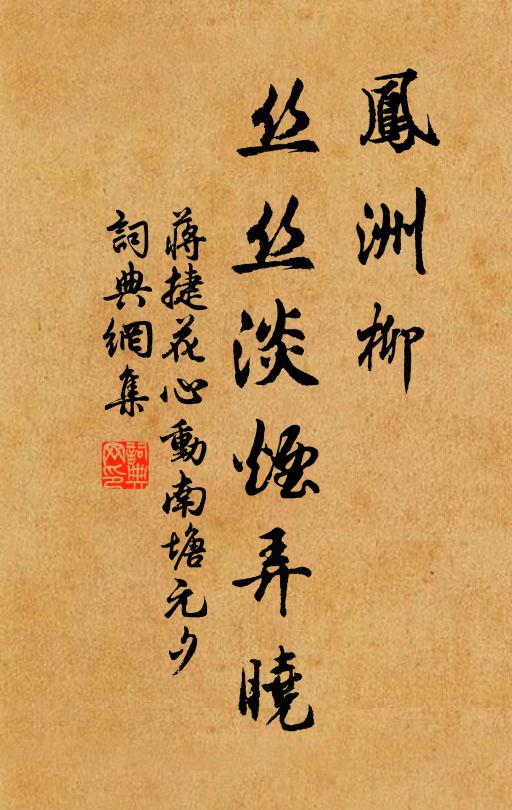 鳳洲柳
丝丝淡煙弄曉
蔣捷花心動南塘元夕
詞典網集
詞典網印